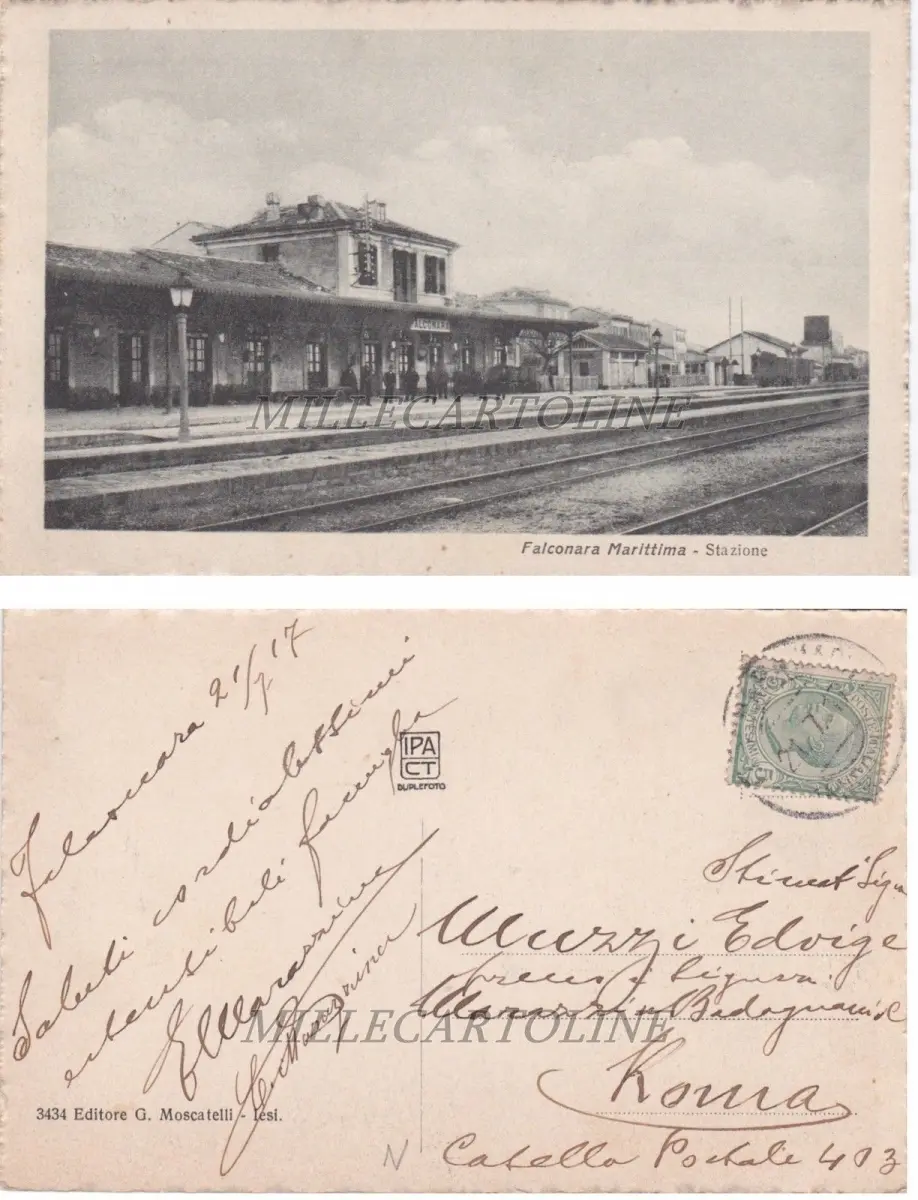 ALCONARA
MILLECARTOLINE
Falconara Marittima - Stazione
Falconara 21/7 17
Saluti cordialissimi
estensibili famiglia
IPA
CT
DUPLEFOTO
POSTE ITALIANE
Muzzi Edvige
presso Signora
Roma
Casella Postale 403
MILLECARTOLINE
3434 Editore G. Moscatelli - Iesi.
N